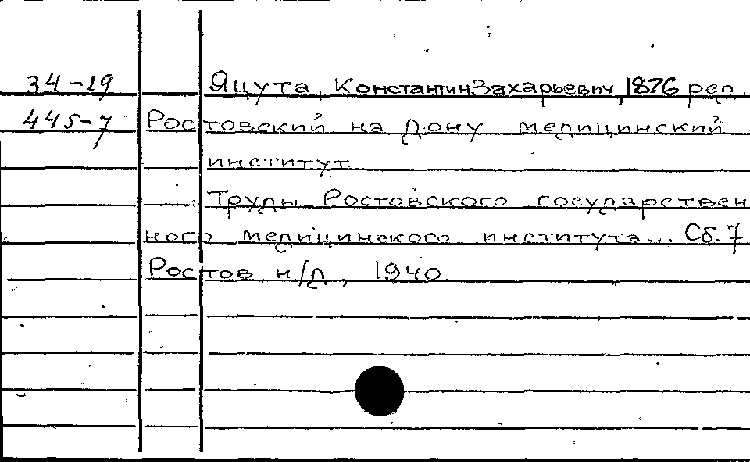 34-29 Яцута, Константин Захарьевич, 1876 ред.
445-7 Ростовский на Дону медицинский
институт
Труды Ростовского государствен
ного медицинского института... Сб. 7
Ростов н/Д, 1940